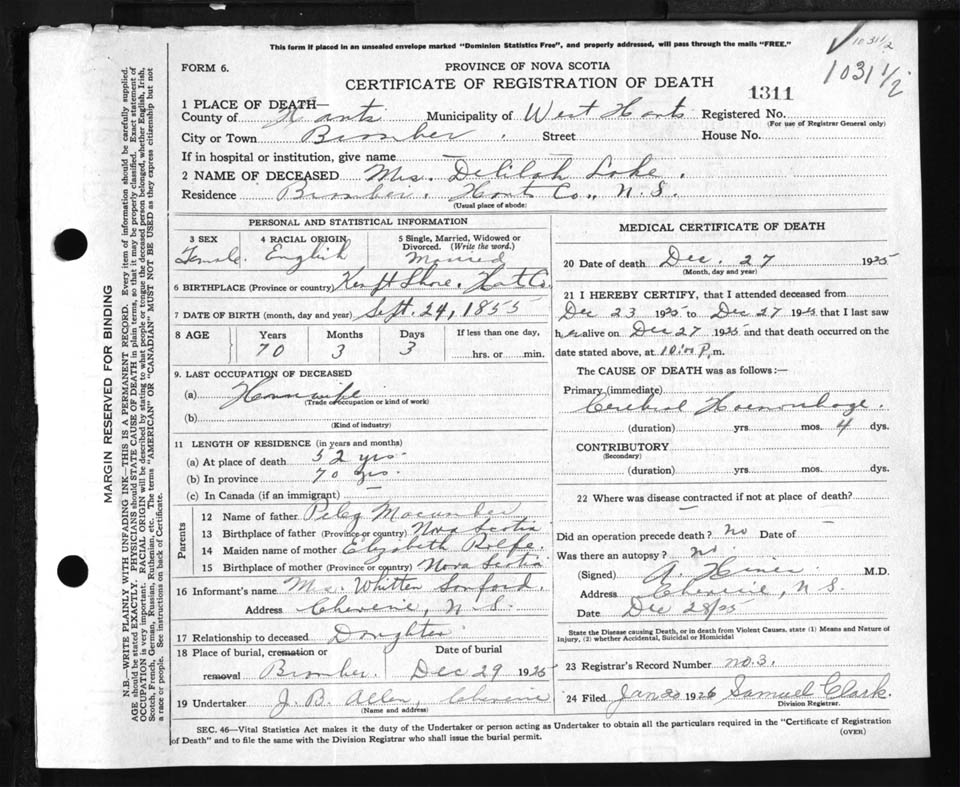 This form if placed in an unsealed envelope marked "Dominion Statistics Free", and properly addressed, will pass through the mails "FREE."
1031 1/2
1031 1/2
FORM 6.
PROVINCE OF NOVA SCOTIA
CERTIFICATE OF REGISTRATION OF DEATH
1311
1 PLACE OF DEATH—
County of Hants Municipality of West Hants Registered No.
(For use of Registrar General only)
City or Town Street House No.
If in hospital or institution, give name —
2 NAME OF DECEASED Mrs. Delilah Lake.
Residence Hants Co., N. S.
(Usual place of abode)
PERSONAL AND STATISTICAL INFORMATION
3 SEX Female.
4 RACIAL ORIGIN English
5 Single, Married, Widowed or Divorced. (Write the word.) Married
6 BIRTHPLACE (Province or country) Kempt Shore. Hants Co.
7 DATE OF BIRTH (month, day and year) Sept. 24, 1855
8 AGE Years Months Days If less than one day,
70 3 3 hrs. or min.
9. LAST OCCUPATION OF DECEASED
(a) Housewife
(Trade or occupation or kind of work)
(b)
(Kind of industry)
11 LENGTH OF RESIDENCE (in years and months)
(a) At place of death 52 yrs.
(b) In province 70 yrs.
(c) In Canada (if an immigrant) —
Parents
12 Name of father Peleg
13 Birthplace of father (Province or country) Nova Scotia
14 Maiden name of mother Elizabeth Rolfe.
15 Birthplace of mother (Province or country) Nova Scotia
16 Informant's name Mrs. Whitten Sanford.
Address Cheverie, N. S.
17 Relationship to deceased Daughter
18 Place of burial, cremation or removal Date of burial
Dec 29 1925
19 Undertaker J. B. Allen, Cheverie
(Name and address)
MEDICAL CERTIFICATE OF DEATH
20 Date of death Dec. 27 1925
(Month, day and year)
21 I HEREBY CERTIFY, that I attended deceased from
Dec 23 1925 to Dec 27 1925 that I last saw
her alive on Dec 27 1925 and that death occurred on the
date stated above, at 10:00 P. m.
The CAUSE OF DEATH was as follows:—
Primary (immediate)
Cerebral Haemorrhage.
(duration) yrs. mos. 4 dys.
CONTRIBUTORY
(Secondary)
(duration) yrs. mos. dys.
22 Where was disease contracted if not at place of death?
Did an operation precede death? no Date of
Was there an autopsy? no.
(Signed) M.D.
Address Cheverie, N S
Date Dec 28/25
State the Disease causing Death, or in death from Violent Causes, state (1) Means and Nature of
Injury, (2) whether Accidental, Suicidal or Homicidal
23 Registrar's Record Number no. 3.
24 Filed Jan 20 1926 Samuel Clark.
Division Registrar.
SEC. 46—Vital Statistics Act makes it the duty of the Undertaker or person acting as Undertaker to obtain all the particulars required in the "Certificate of Registration
of Death" and to file the same with the Division Registrar who shall issue the burial permit.
(OVER)
MARGIN RESERVED FOR BINDING
N.B.—WRITE PLAINLY WITH UNFADING INK—THIS IS A PERMANENT RECORD. Every item of information should be carefully supplied.
AGE should be stated EXACTLY. PHYSICIANS should STATE CAUSE OF DEATH in plain terms, so that it may be properly classified. Exact statement of
OCCUPATION is very important. RACIAL ORIGIN will be described by stating to what people or tongue the deceased person belonged, whether English, Irish,
Scotch, French, German, Russian, Ruthenian, etc. The terms "AMERICAN" OR "CANADIAN" MUST NOT BE USED as they express citizenship but not
a race or people. See instructions on back of Certificate.